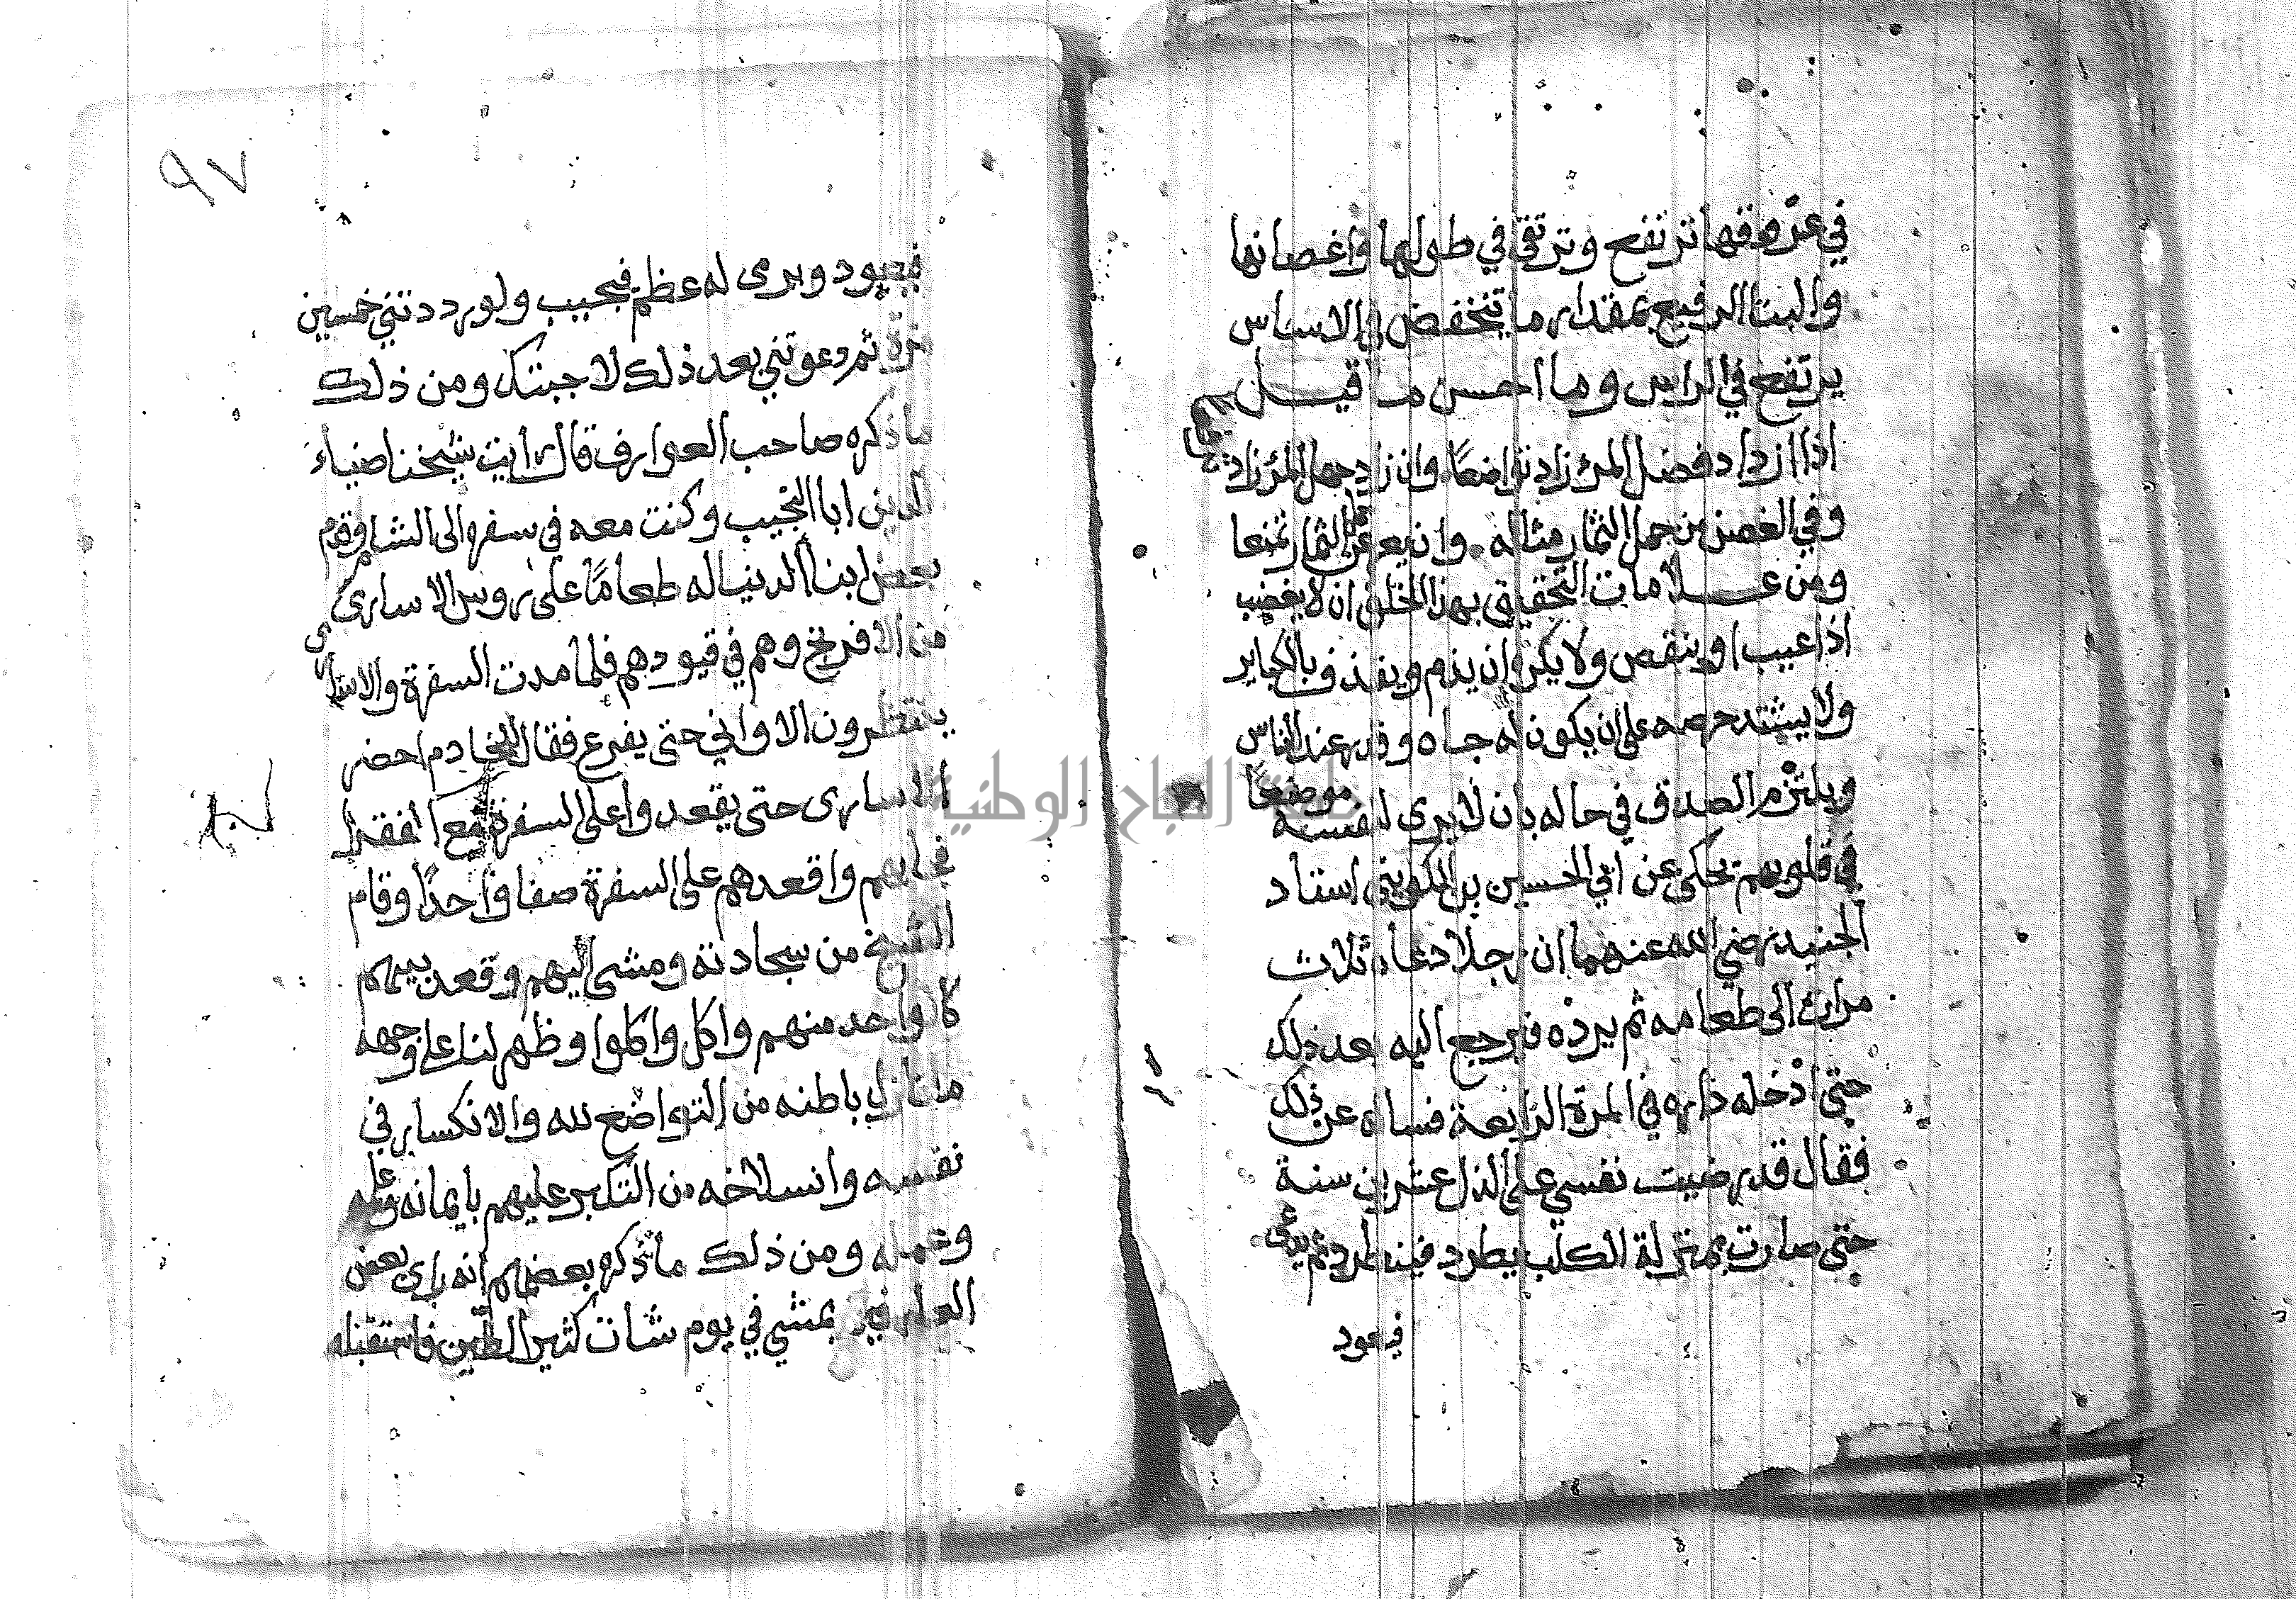 في عروقها ترتفع وترتقي في طولها واغصانها
والبنا الرفيع بمقدار ما تنخفض في الاساس
يرتفع في الراس وما احسن ما قيل
اذا ازداد فضل المرء زاد تواضعا وان زاد جهل المرء زاد
وفي الغصن من حمل الثمار مثاله وان يعر عن حمل الثمار تمنعا
ومن علامات التحقيق بهذا الخلق ان لا يغضب
اذا عيب او ينقص ولا يكره ان يذم ويقذف بالكباير
ولا يشتد حرصه على ان يكون له جاه وقدر عند الناس
ويلتزم الصدق في حاله بان لا يرى لنفسه موضعا
في قلوبهم يحكى عن ابي الحسين بن استاد
الجنيد رضي الله عنهما ان رجلا دعاه ثلاث
مرات الى طعامه ثم يرده فيرجع اليه بعد ذلك
حتى ادخله داره في المرة الرابعة فساله عن ذلك
فقال قد رضيت نفسي على الذل عشرين سنة
حتى صارت بمنزلة الكلب يطرد فينطرد ثم يدعى
فيعود
٩٧
فيعود ويرمى له عظم فيجيب ولو رددتني خمسين
مرة ثم دعوتني بعد ذلك لاجبتك ومن ذلك
ما ذكره صاحب العوارف قال رايت شيخنا ضياء
الدين ابا النجيب وكنت معه في سفره الى الشام وقدم
بعض ابنا الدنيا له طعاما على روس الاسارى
من الافرنج وهم في قيودهم فلما مدت السفرة والاسارى
ينتظرون الاواني حتى يفرع فقال للخادم احضر
الاسارى حتى يقعدوا على السفرة مع الفقرا
فجابهم واقعدهم على السفرة صفا واحدا وقام
الشيخ من سجادته ومشى اليهم وقعد بينهم
كالواحد منهم واكل واكلوا وظهر لنا على وجهه
ما نازل باطنه من التواضع لله والانكسار في
نفسه وانسلاخه من التكبر عليهم بايمانه وعلمه
وعمله ومن ذلك ما ذكره بعضهم انه راى بعض
العارفين يمشي في يوم شات كثير الطين فاستقبله
جامعة النجاح الوطنية